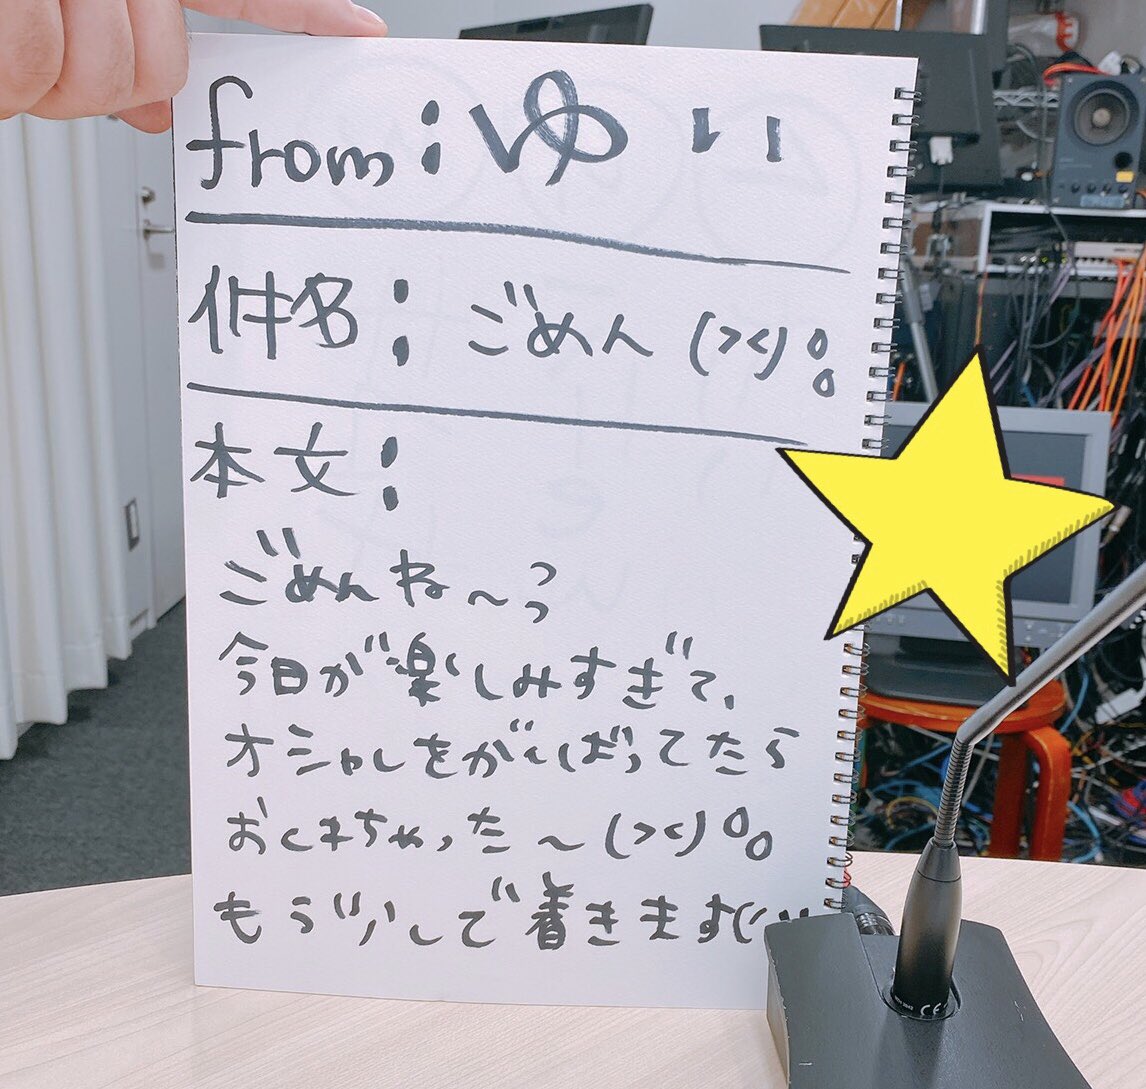 from：ゆい
件名：ごめん(><)。。
本文：
ごめんね〜っっ
今日が楽しみすぎて、
オシャレをがんばってたら
おくれちゃった〜(><)。。
もう少しで着きます(;;
CE